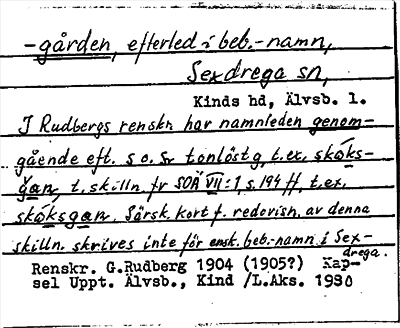 -gården, efterled i beb.-namn,
Sexdrega sn,
Kinds hd, Älvsb. l.
I Rudbergs renskr har namnleden genom-
gående eft. s o. r tonlöst g, t.ex. skóks-
gan, t. skilln. fr SOÄ VII:1, s. 194 ff, t.ex.
skóksgan. Särsk. kort f. redovisn. av denna
skilln. skrives inte för ensk. beb.-namn i Sex-
drega.
Renskr. G.Rudberg 1904 (1905?) Kap-
sel Uppt. Älvsb., Kind /L.Aks. 1980